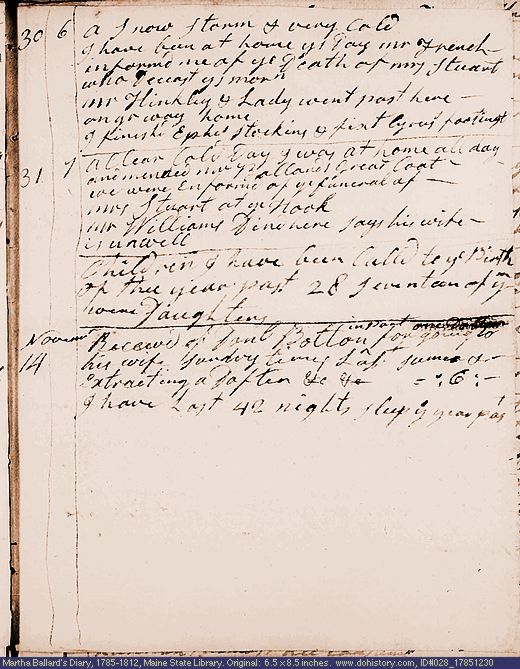 30 6 a Snow Storm & very Cold
I have been at home ys Day mr French
inform'd me of ye Death of mrs Stuart
who Deceast ys morn
mr Hinkley & Lady went past here
on yr way home
I finisht Ephms Stockins & first Cyrus
31 7 a Clear Cold Day I was at home all day
and mended mr Ballards Great Coat
we were informd of ye funeral of
mrs Stuart at ye Hook
mr Williams Dind here says his wife
is unwell
Children I have been Calld to ye Birth
of thee year past 28 Seventeen of ym
were Daughters
Novemr in part
14 Receivd of Saml Bolton for going to
his wife Sundry times Last sumer &
extracting a &c &c = " 6 "
I have Lost 42 nights sleep ye year past
Martha Ballard's Diary, 1785-1812, Maine State Library. Original: 6.5 x 8.5 inches. www.dohistory.com, ID#028_17851230